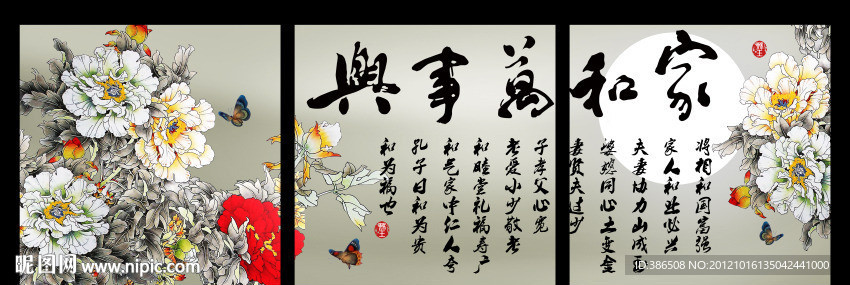 家和萬事興
將相和國富強
家人和业必兴
夫妻协力山成玉
婆媳同心土变金
妻贤夫过少
子孝父心宽
老爱小少敬老
和睦堂礼福寿广
和气家中仁人夸
孔子曰和为贵
和为福也
昵图网 www.nipic.com
ID:386508 NO:20121016135042441000